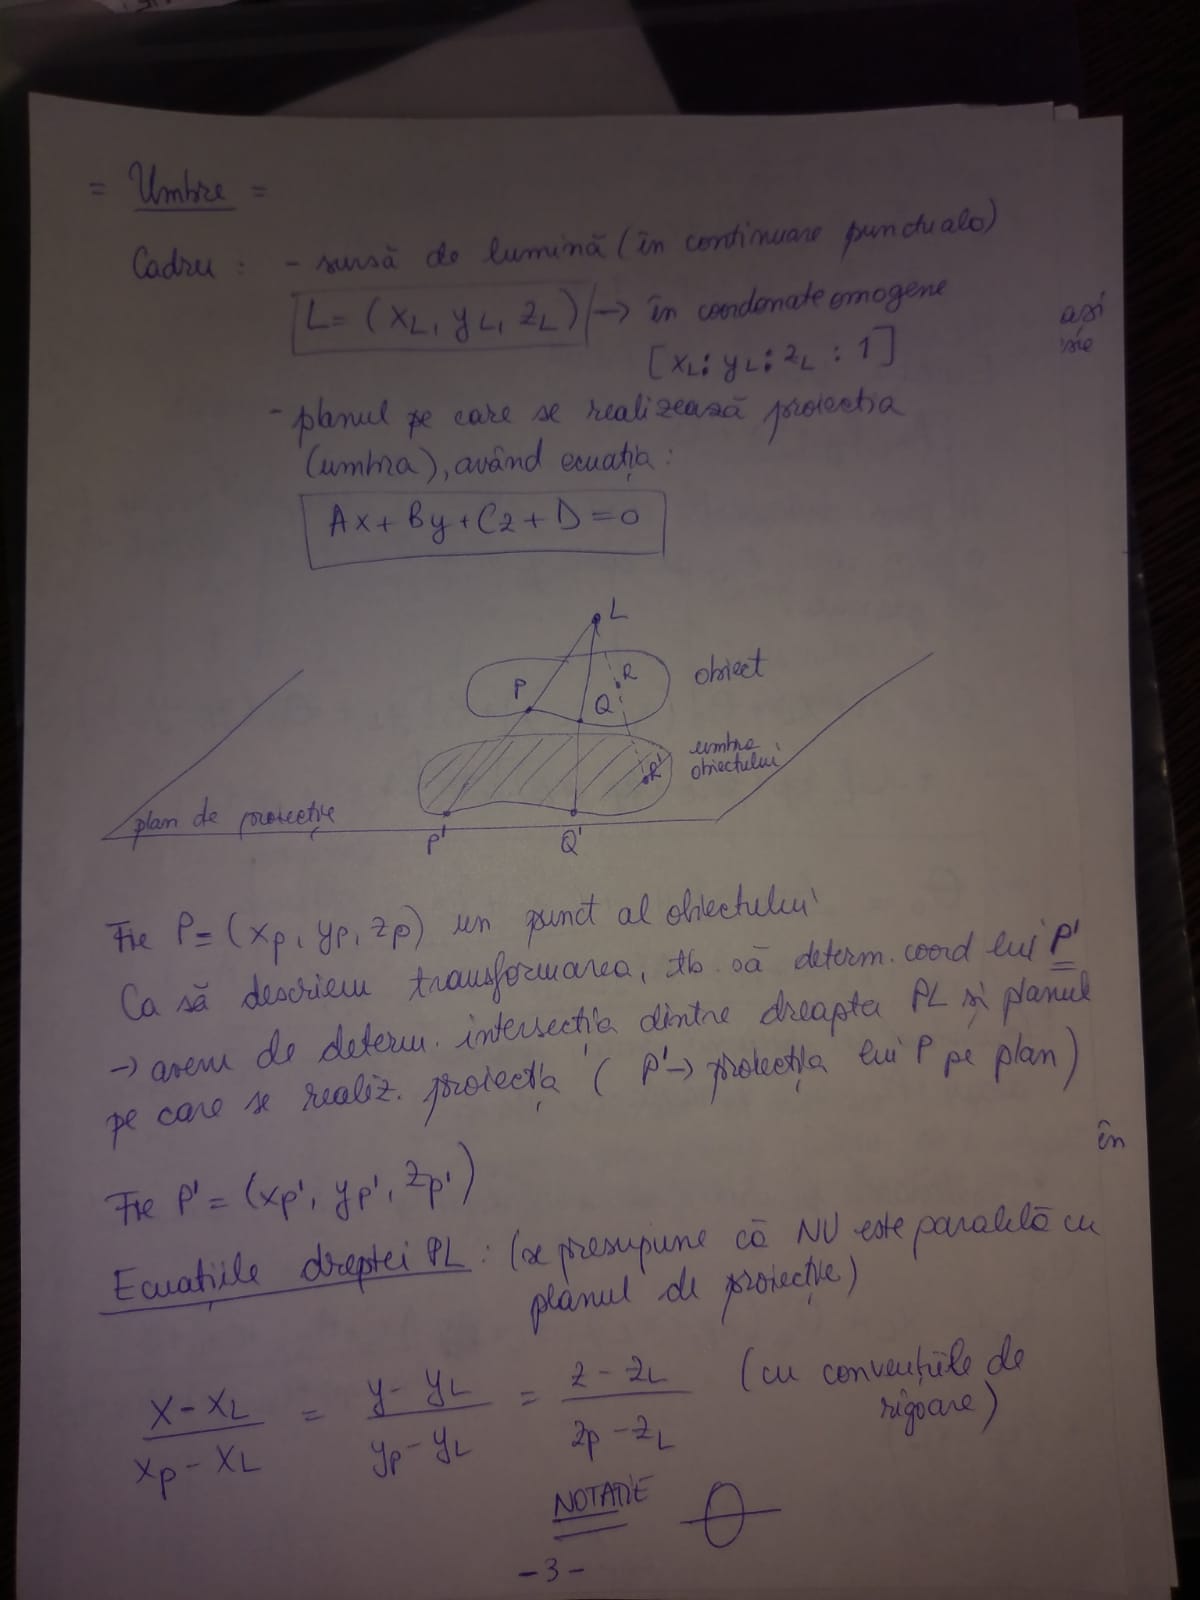 = Umbre =
Cadru : - sursă de lumină (în continuare punctuală)
L = (xL, yL, zL) → în coordonate omogene
[xL : yL : zL : 1]
- planul pe care se realizează proiectia
(umbra), având ecuația :
Ax + By + Cz + D = 0
L
P
Q
R
obiect
umbra
obiectului
R'
plan de proiecție
P'
Q'
Fie P = (xp, yp, zp) un punct al obiectului
Ca să descriem transformarea, tb. să determ. coord lui P'
→ avem de determ. intersecția dintre dreapta PL și planul
pe care se realiz. proiecția ( P' → proiecția lui P pe plan)
Fie P' = (xp', yp', zp')
Ecuațiile dreptei PL : (se presupune că NU este paralelă cu
planul de proiecție)
x - xL / xp - xL = y - yL / yp - yL = z - zL / zp - zL (cu convențiile de
rigoare)
NOTAȚIE
- 3 -
în